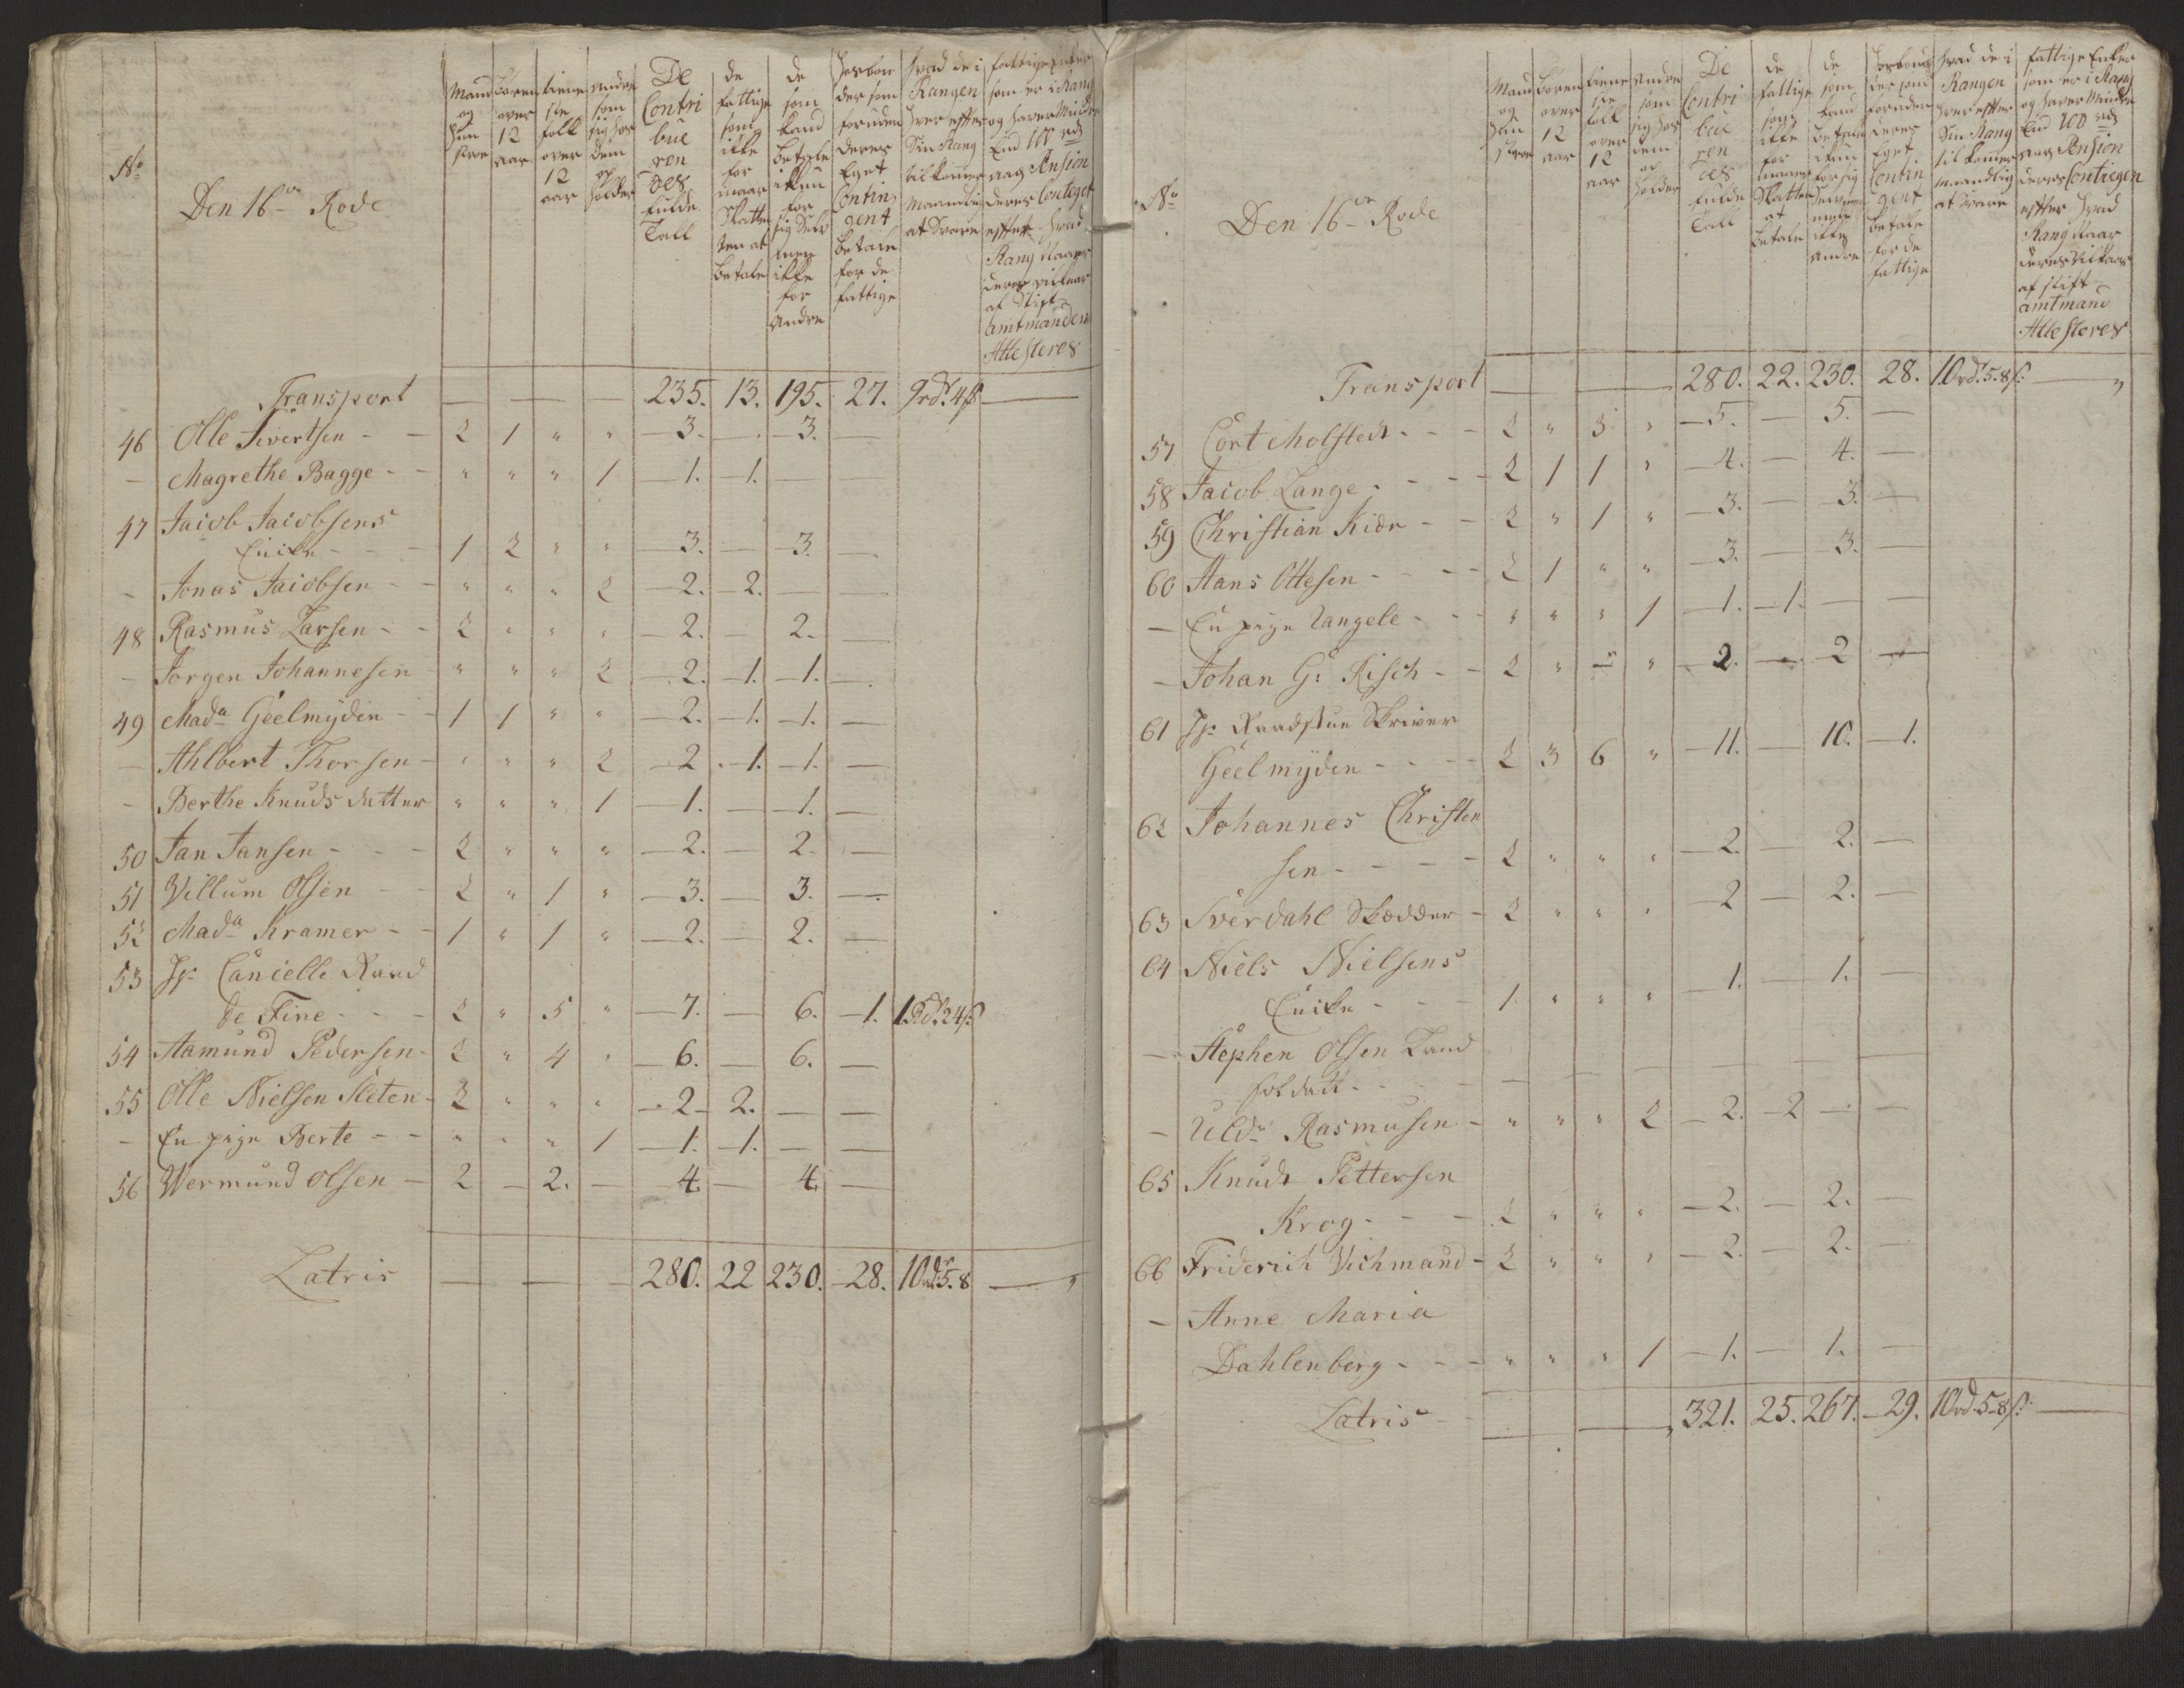 No
Den 16de Rode
Mand og Hustroe | Børen over 12 aar | tieneste folk over 12 aar | andre som sig hos dem opholder | De Contribuerendes fulde Tall | de fattige som ikke formaar Skatten at betale | de som kand betale ikkun for sig Selv men ikke for andre | Hosbonder som foruden deres Eget Contingent betale for de fattige | Hvad de i Rangen hver efter Sin Rang tilkommer Maanedlig at Svare | fattige Enker som er i Rang og haver Mindre End 100 rd aarl Pension deres Contigent efter hvad Rang Naar deres vilkaar af Stiftamtmanden Attesteres
Transport — — — 235. 13. 195. 27. 9rdr 4ß —
46 Olle Sivertsen - - 2 1 " " 3. - 3. —
- Magrethe Bagge - - " " " 1 1. 1. — —
47 Jacob Jacobsens
Encke - - - 1 2 " " 3. — 3. —
- Jonas Jacobsen - - " " " 2 2. 2. — —
48 Rasmus Larsen - - 2 " " " 2. — 2. —
- Jørgen Johannesen " " " 2 2. 1. 1. —
49 Mada Geelmyden - - 1 1 " " 2. 1. 1. —
- Ahlbert Thorsen - " " " 2 2. 1. 1. —
- Berthe Knuds datter " " " 1 1. — 1. —
50 Jan Jansen - - - 2 " " " 2. — 2. —
51 Villum Olsen - - 2 " 1 " 3. — 3. —
52 Mada Kramer - - 1 " 1 " 2. — 2. —
53 Hr Cancelle Raad
de Fine - - - 2 " 5 " 7. — 6. 1. 1Rdr 24ß
54 Aamund Pedersen - 2 " 4 " 6. — 6. —
55 Olle Nielsen Sleten - 2 " " " 2 2. — —
- En pige Berte - - " " " 1 1. 1. — —
56 Wermund Olsen - 2 — 2. — 4. — 4. —
Latris — — — 280. 22 230. 28. 10rdr 5. 8 — "
No
Den 16de Rode
Mand og Hustroe | Børen over 12 aar | tieneste folk over 12 aar | Andre som sig hos dem opholder | De Contribuerendes fulde Tall | de fattige som ikke formaar Skatten at betale | de som kand betale ikkun for sig Selv men ikke andre | Hosbonder som foruden deres Eget Contingent betale for de fattige | Hvad de i Rangen hver efter Sin Rang tilkommer maanedlig at Svare | fattige Enker som er i Rang og haver Mindre End 100 rd aarl Pension deres Contiegen efter hvad Rang Naar deres Vilkaar af stiftamtmand Attesteres
Transport — — 280. 22. 230. 28. 10rdr. 5. 8ß: — "
57 Cort Molsted - - - 2 " 3 " 5. — 5. —
58 Jacob Lange - - - 2 1 1 " 4. — 4. —
59 Christian Kidr - - 2 " 1 " 3. — 3. —
60 Hans Ottesen - - - 2 1 " " 3. — 3. —
- En pige Langele - - - " " " 1 1. 1. — —
- Johan G: Risch - - 2 " — " 2. — 2 —
61 Hr Raadstue Skriver
Geelmyden - - - 2 3 6 " 11. — 10. 1.
62 Johannes Christen
sen - - - - 2 " " " 2. — 2. —
63 Sverdahl Skædder - 2 " " " 2 — 2. —
64 Niels Nielsens
Encke - - - 1 " " " 1. — 1. —
- Stephen Olsen Land
soldatt - - - — — — — — — —
- Uldr Rasmusen - " " " 2 2. 2 — —
65 Knudt Pettersen
Krog - - - 2 " " " 2. — 2. —
66 Friderich Vichmand - 2 " " " 2. — 2. —
- Anne Maria
Dahlenberg - - - " " " 1 1. — 1. —
Latris — — 321. 25. 267. 29. 10rd 5. 8ß: —